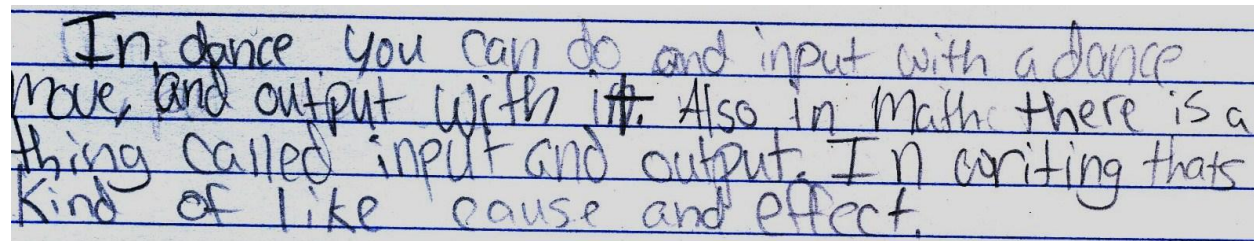 In dance you can do and input with a dance
move, and output with it. Also in Math there is a
thing called input and output. In writing thats
kind of like cause and effect.